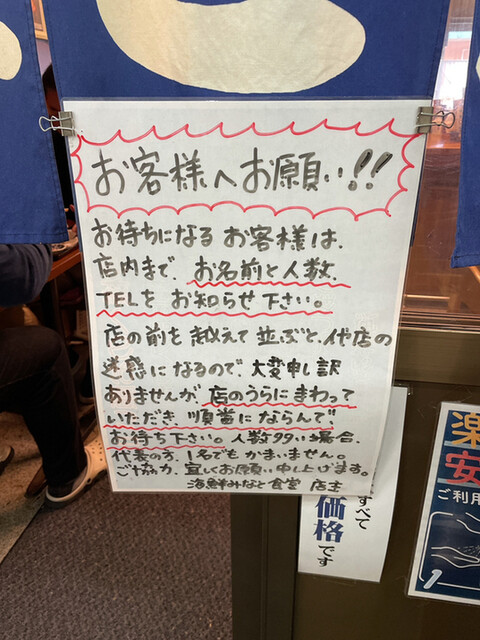 お客様へお願い!!
お待ちになるお客様は、
店内まで、お名前と人数、
TELをお知らせ下さい。
店の前を越えて並ぶと、代店の
迷惑になるので、大変申し訳
ありませんが、店のうらにまわって
いただき、順番にならんで、
お待ち下さい。人数多い場合、
代表の方、1名でもかまいません。
ご協力、宜しくお願い申し上げます。
海鮮みなと食堂 店主
すべて
価格です
楽
安
ご利用